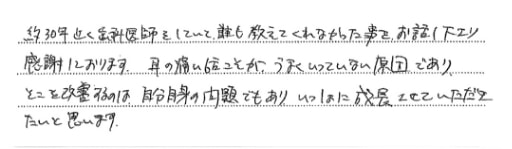 約30年近く歯科医師をしていて、誰も教えてくれなかった事を、お話し下さり
感謝しております。耳の痛いことが、うまくいっていない原因であり、
そこを改善するのは、自分自身の内題でもあり、いっしょに成長させていただき
たいと思います。